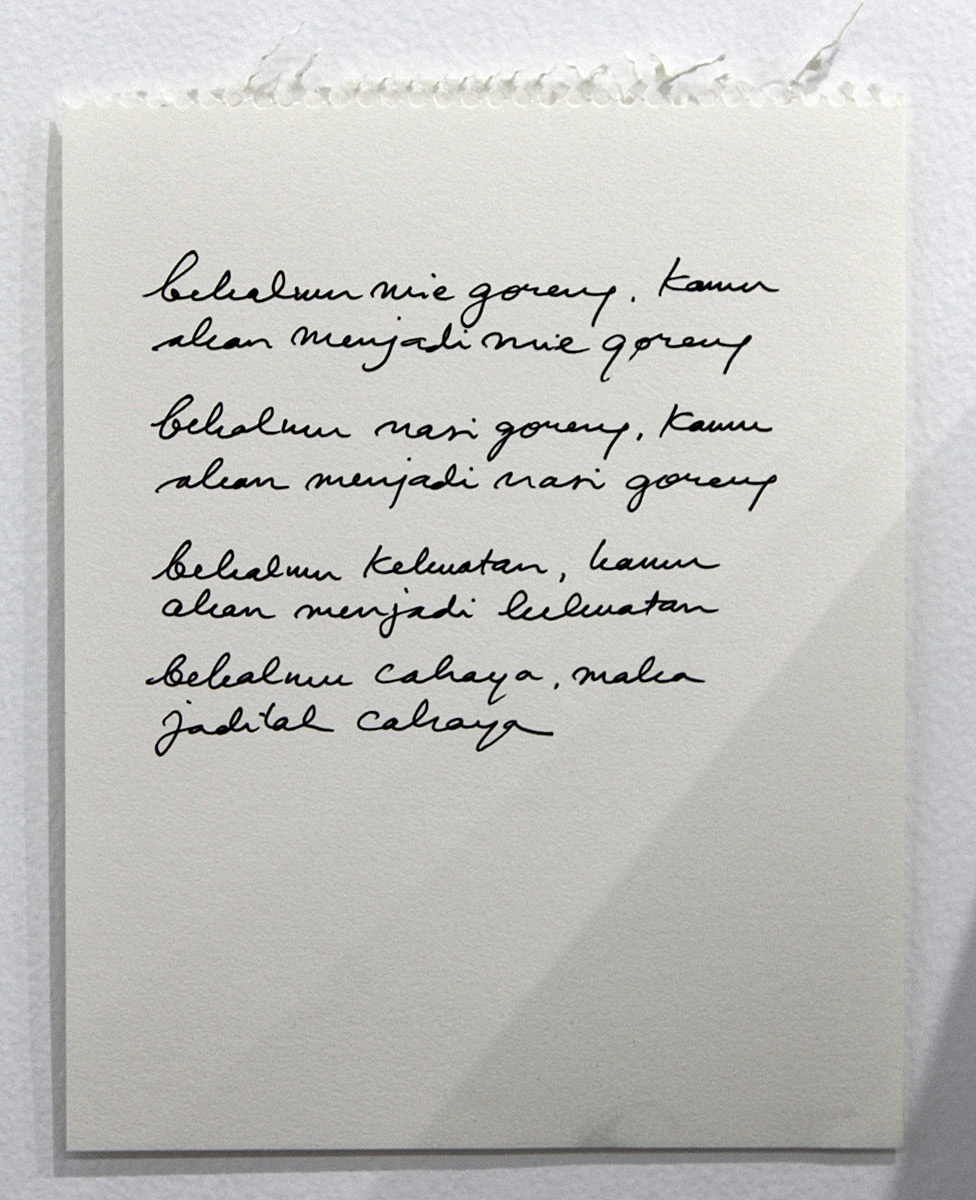 bekalmu mie goreng, kamu
akan menjadi mie goreng
bekalmu nasi goreng, kamu
akan menjadi nasi goreng
bekalmu kekuatan, kamu
akan menjadi kekuatan
bekalmu cahaya, maka
jadilah cahaya